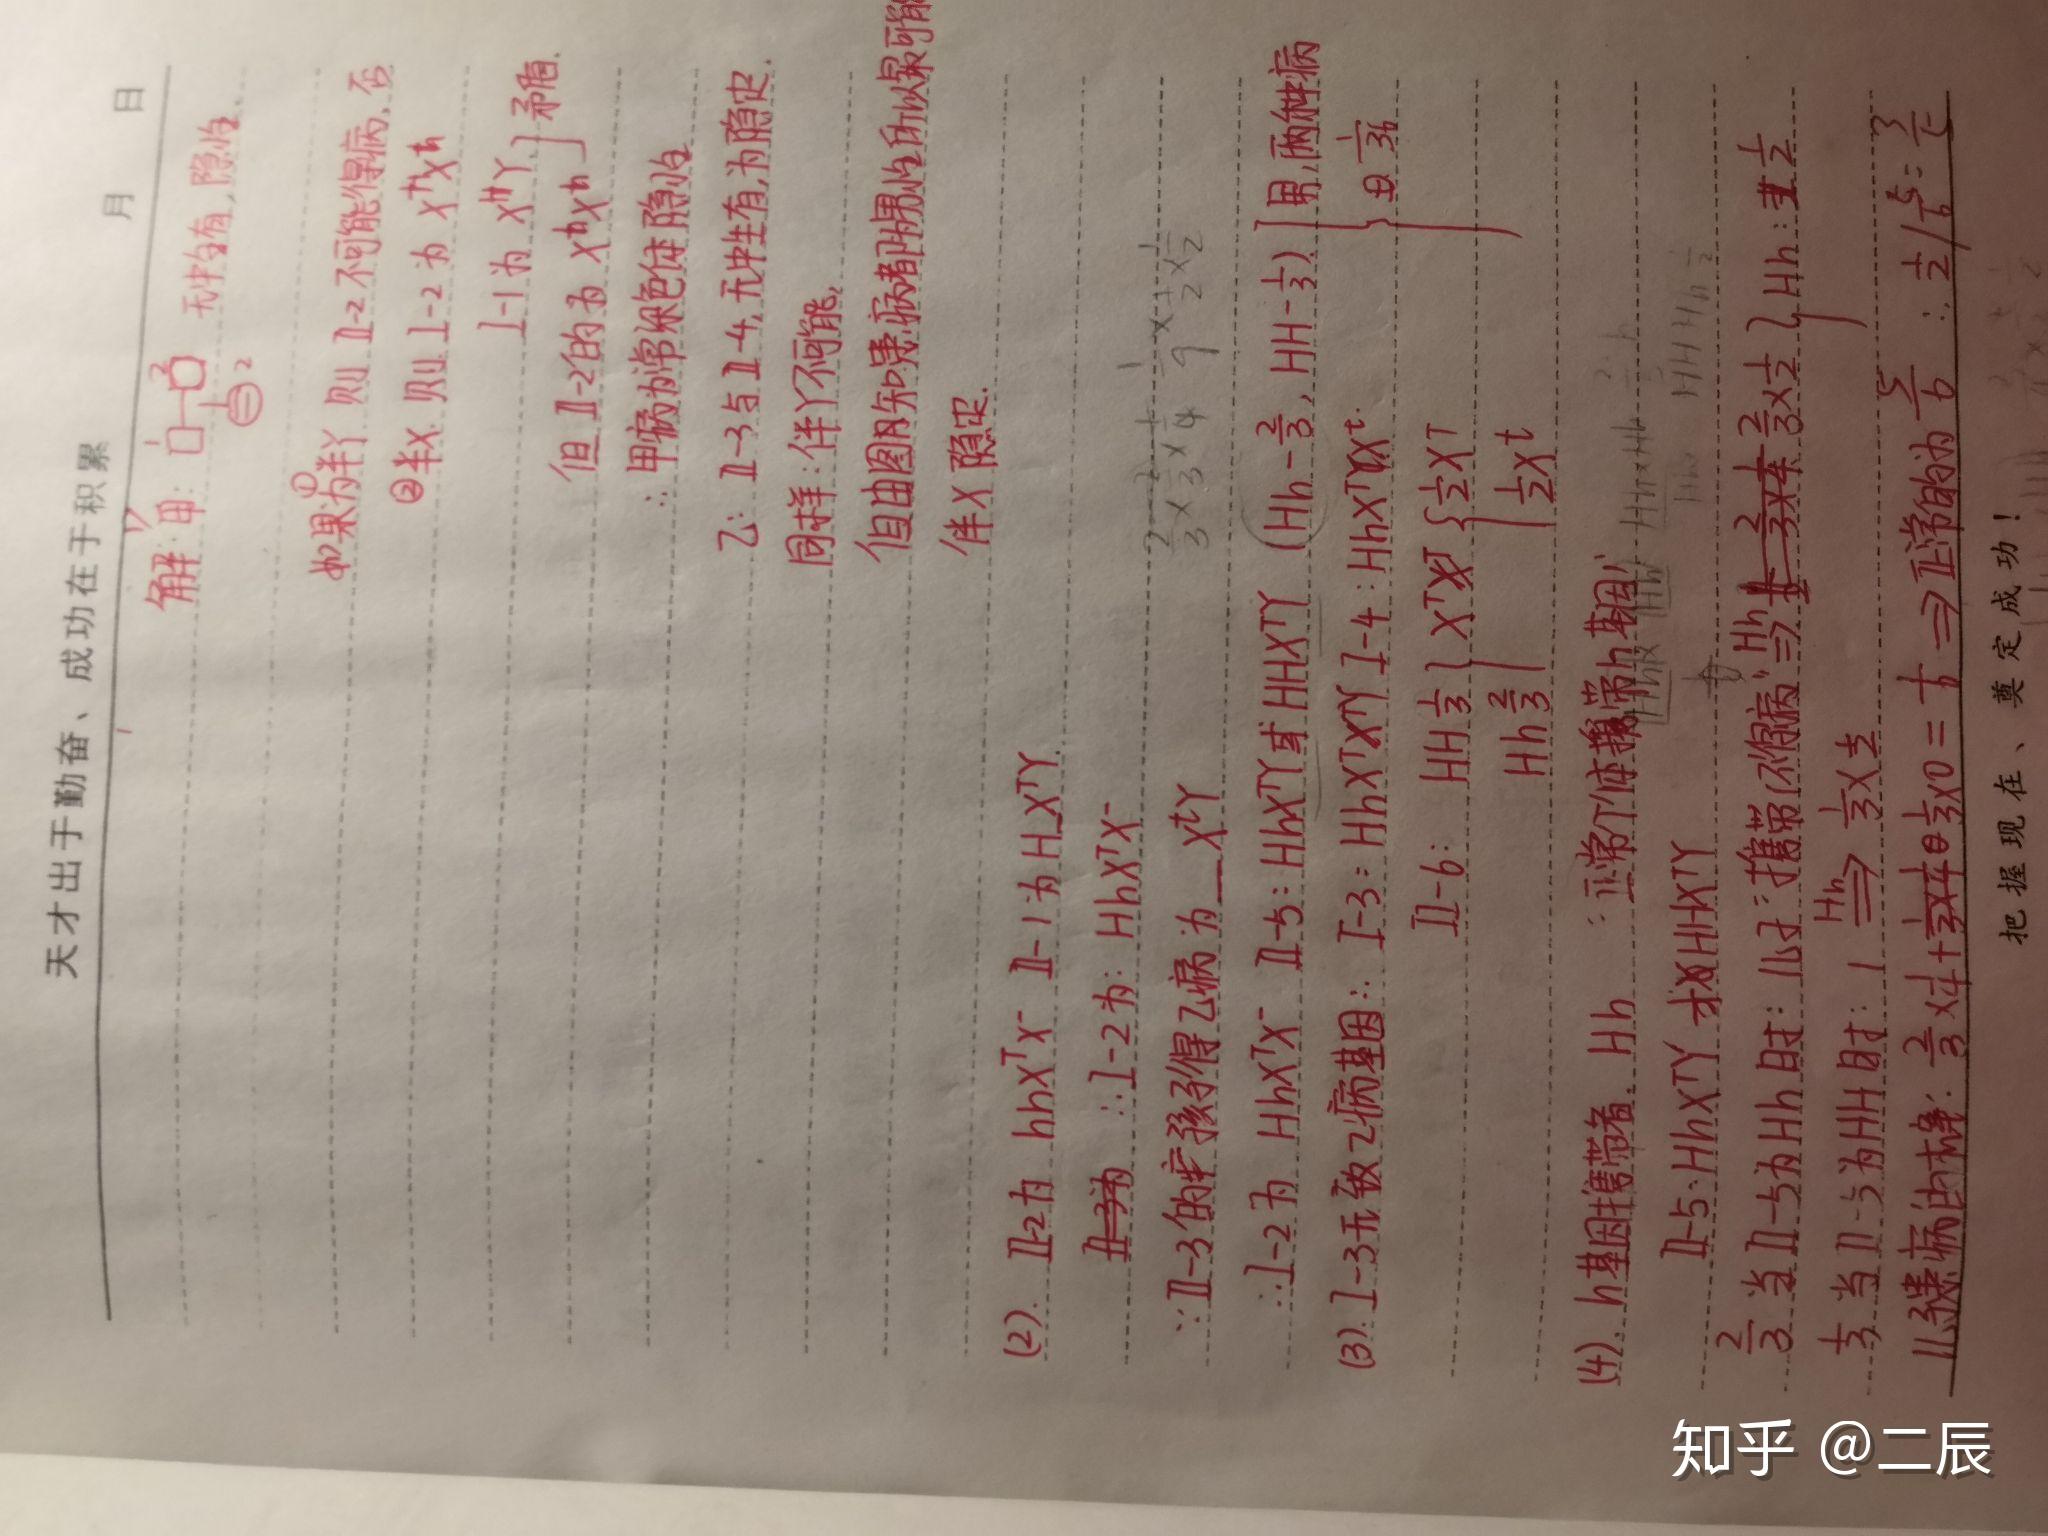 天才出于勤奋、成功在于积累
月 日
解: 甲: 无中生有, 隐性.
如果①为伴Y 则 II-2 不可能得病, 否
②伴X 则 I-2 为 XʰXʰ
I-1 为 XᴴY } 矛盾.
但 II-2的为 XʰXʰ
∴ 甲病为常染色体隐性
乙: II-3与II-4,无中生有,为隐史.
同样: 伴Y不可能,
但由图A知患病者都男性所以最可能
伴X隐史.
(2). II-2为 hhXᵀX⁻ II-1为H_XᵀY.
∴ I-2为: HhXᵀX⁻
∵ II-3的孩子得乙病 为__XᵗY
∴ I-2为 HhXᵀX⁻ II-5: HhXᵀY 或 HHXᵀY (Hh-2/3, HH-1/3) 男,两种病
(3). I-3无致乙病基因∴ I-3: HhXᵀY I-4: HhXᵀXᵗ. 1/36
II-6: HH 1/3 } Xᵀ { 1/2 Xᵀ
Hh 2/3 1/2 Xᵗ
(4). h基因携带者. Hh ∵正常个体携带h基因,
II-5: HhXᵀY HHXᵀY
2/3 当II-5为Hh时: 儿子:携带(不俩病) Hh⇒ 2/3×1/2 } Hh: 1/2
1/3 当II-5为HH时: 1 Hh⇒ 1/3×
儿子患病的 2/3×1/4+1/3×0=1/6 ⇒正常的为 5/6 ∴ 1/2/5/6=3/5
把握现在、奠定成功!
知乎 @二辰